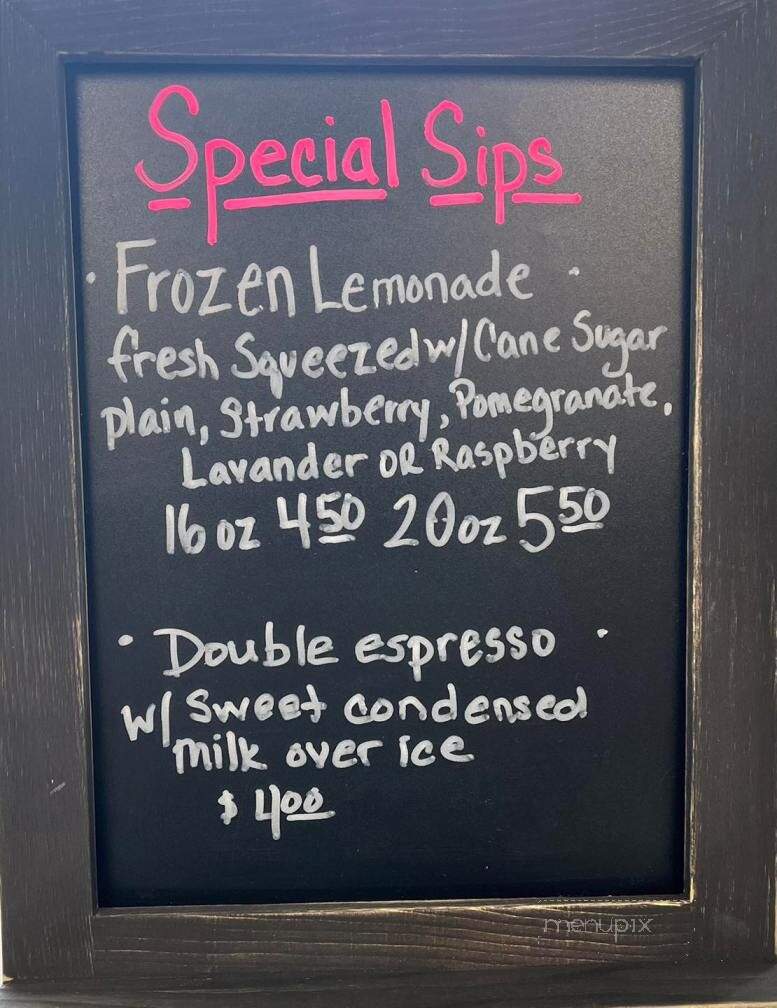 Special Sips
· Frozen Lemonade ·
fresh Squeezed w/ Cane Sugar
plain, Strawberry, Pomegranate,
Lavander OR Raspberry
16 oz 4 50 20 oz 5 50
· Double espresso ·
w/ Sweet condensed
milk over ice
$ 4 00
menupix